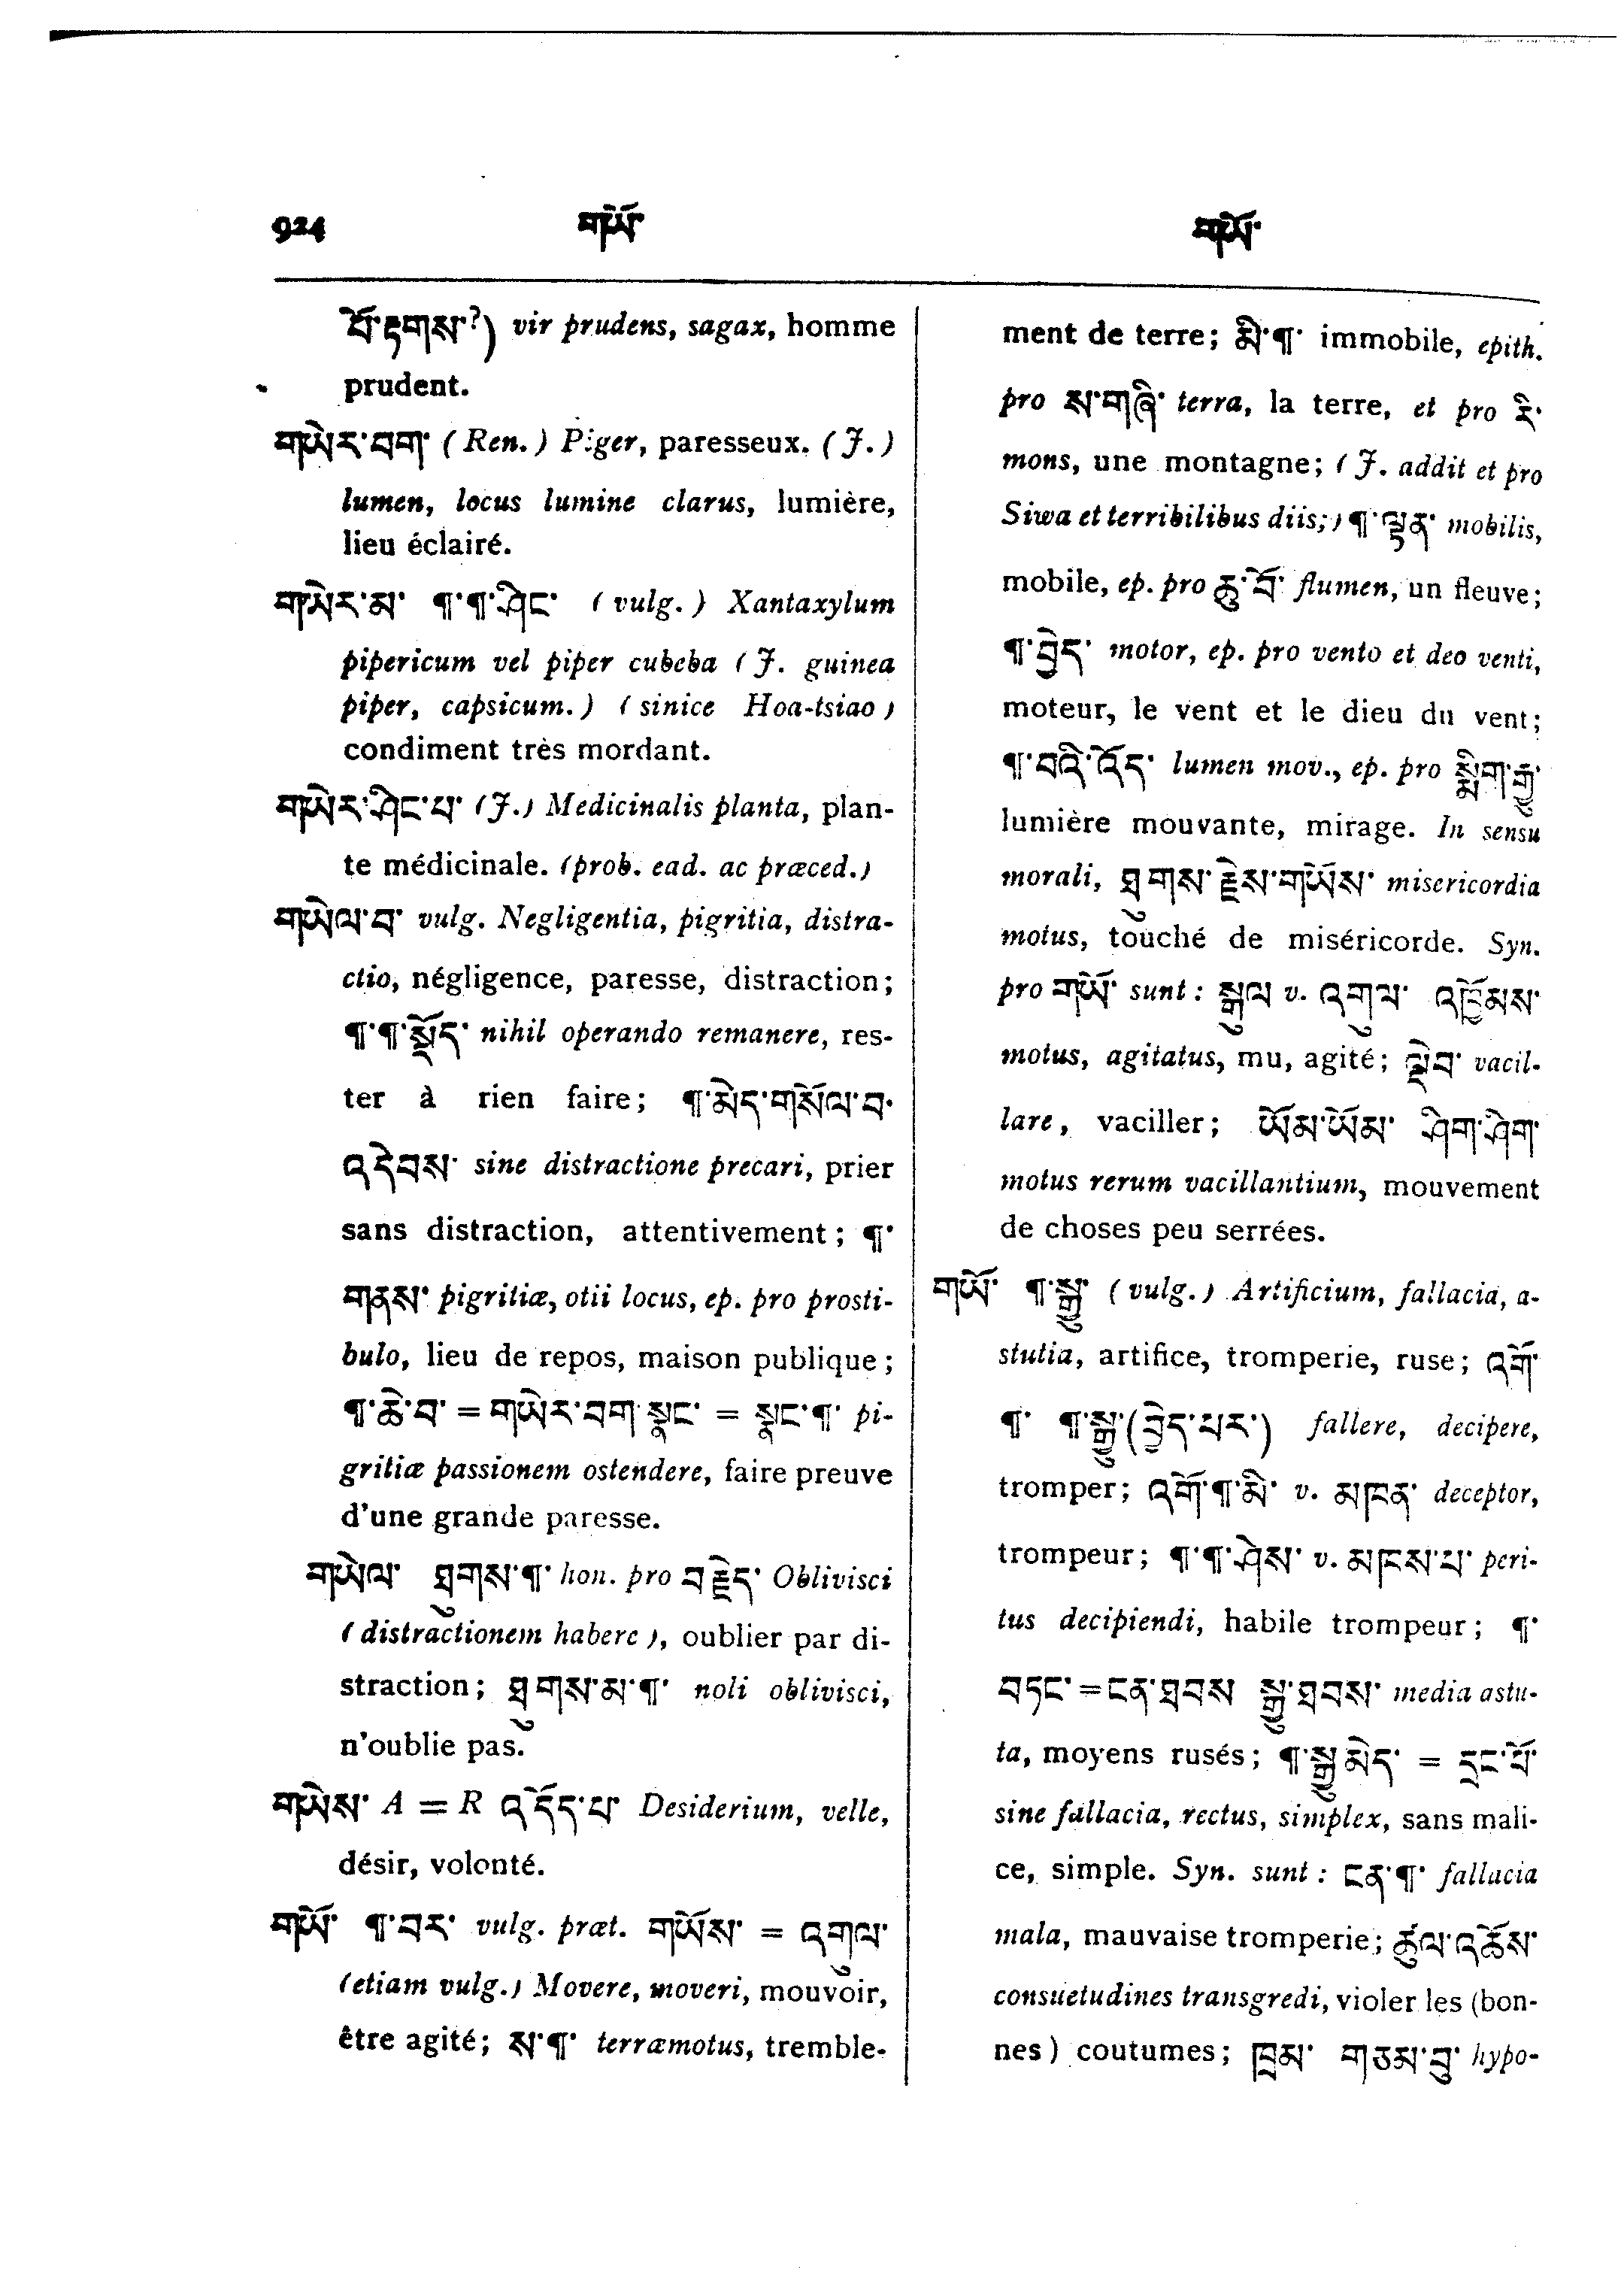 924 གཡོ་ གཡོ་
པོ་རྟགས་?) vir prudens, sagax, homme
prudent.
གཡེར་བག་ (Ren.) Piger, paresseux. (J.)
lumen, locus lumine clarus, lumière,
lieu éclairé.
གཡེར་མ་ ¶་¶་ཤིང་ (vulg.) Xantaxylum
pipericum vel piper cubeba (J. guinea
piper, capsicum.) (sinice Hoa-tsiao)
condiment très mordant.
གཡེར་ཤིང་པ་ (J.) Medicinalis planta, plan-
te médicinale. (prob. ead. ac præced.)
གཡེལ་བ་ vulg. Negligentia, pigritia, distra-
ctio, négligence, paresse, distraction;
¶་¶་སྡོད་ nihil operando remanere, res-
ter à rien faire; ¶་མེད་གསོལ་བ་
འདེབས་ sine distractione precari, prier
sans distraction, attentivement; ¶་
གནས་ pigritiæ, otii locus, ep. pro prosti-
bulo, lieu de repos, maison publique;
¶་ཆེ་བ་ = གཡེར་བག་སྣང་ = སྣང་¶་ pi-
gritiæ passionem ostendere, faire preuve
d'une grande paresse.
གཡེལ་ ཐུགས་¶་ hon. pro བརྗེད་ Oblivisci
(distractionem habere), oublier par di-
straction; ཐུགས་མ་¶་ noli oblivisci,
n'oublie pas.
གཡེས་ A = R འདོད་པ་ Desiderium, velle,
désir, volonté.
གཡོ་ ¶་བར་ vulg. præt. གཡོས་ = འགུལ་
(etiam vulg.) Movere, moveri, mouvoir,
être agité; ས་¶་ terræmotus, tremble-
ment de terre; མི་¶་ immobile, epith.
pro ས་གཞི་ terra, la terre, et pro རི་
mons, une montagne; (J. addit et pro
Siwa et terribilibus diis;) ¶་ལྡན་ mobilis,
mobile, ep. pro ཆུ་བོ་ flumen, un fleuve;
¶་བྱེད་ motor, ep. pro vento et deo venti,
moteur, le vent et le dieu du vent;
¶་བའི་འོད་ lumen mov., ep. pro སྨིག་རྒྱུ་
lumière mouvante, mirage. In sensu
morali, ཐུགས་རྗེས་གཡོས་ misericordia
motus, touché de miséricorde. Syn.
pro གཡོ་ sunt: སྒུལ v. འགུལ་ འཁྱོམས་
motus, agitatus, mu, agité; ལྡེབ་ vacil-
lare, vaciller; ཡོམ་ཡོམ་ ཤིག་ཤིག་
motus rerum vacillantium, mouvement
de choses peu serrées.
གཡོ་ ¶་སྒྱུ་ (vulg.) Artificium, fallacia, a-
stutia, artifice, tromperie, ruse; འགོ་
¶་ ¶་སྒྱུ་(བྱེད་པར་) fallere, decipere,
tromper; འགོ་¶་མི་ v. མཁན་ deceptor,
trompeur; ¶་¶་ཤེས་ v. མཁས་པ་ peri-
tus decipiendi, habile trompeur; ¶་
བཏང་ = ངན་ཐབས སྒྱུ་ཐབས་ media astu-
ta, moyens rusés; ¶་སྒྱུ་མེད་ = དྲང་པོ་
sine fallacia, rectus, simplex, sans mali-
ce, simple. Syn. sunt: ངན་¶་ fallacia
mala, mauvaise tromperie; ཚུལ་འཆོས་
consuetudines transgredi, violer les (bon-
nes) coutumes; ཁྲམ་ གཅམ་བུ་ hypo-